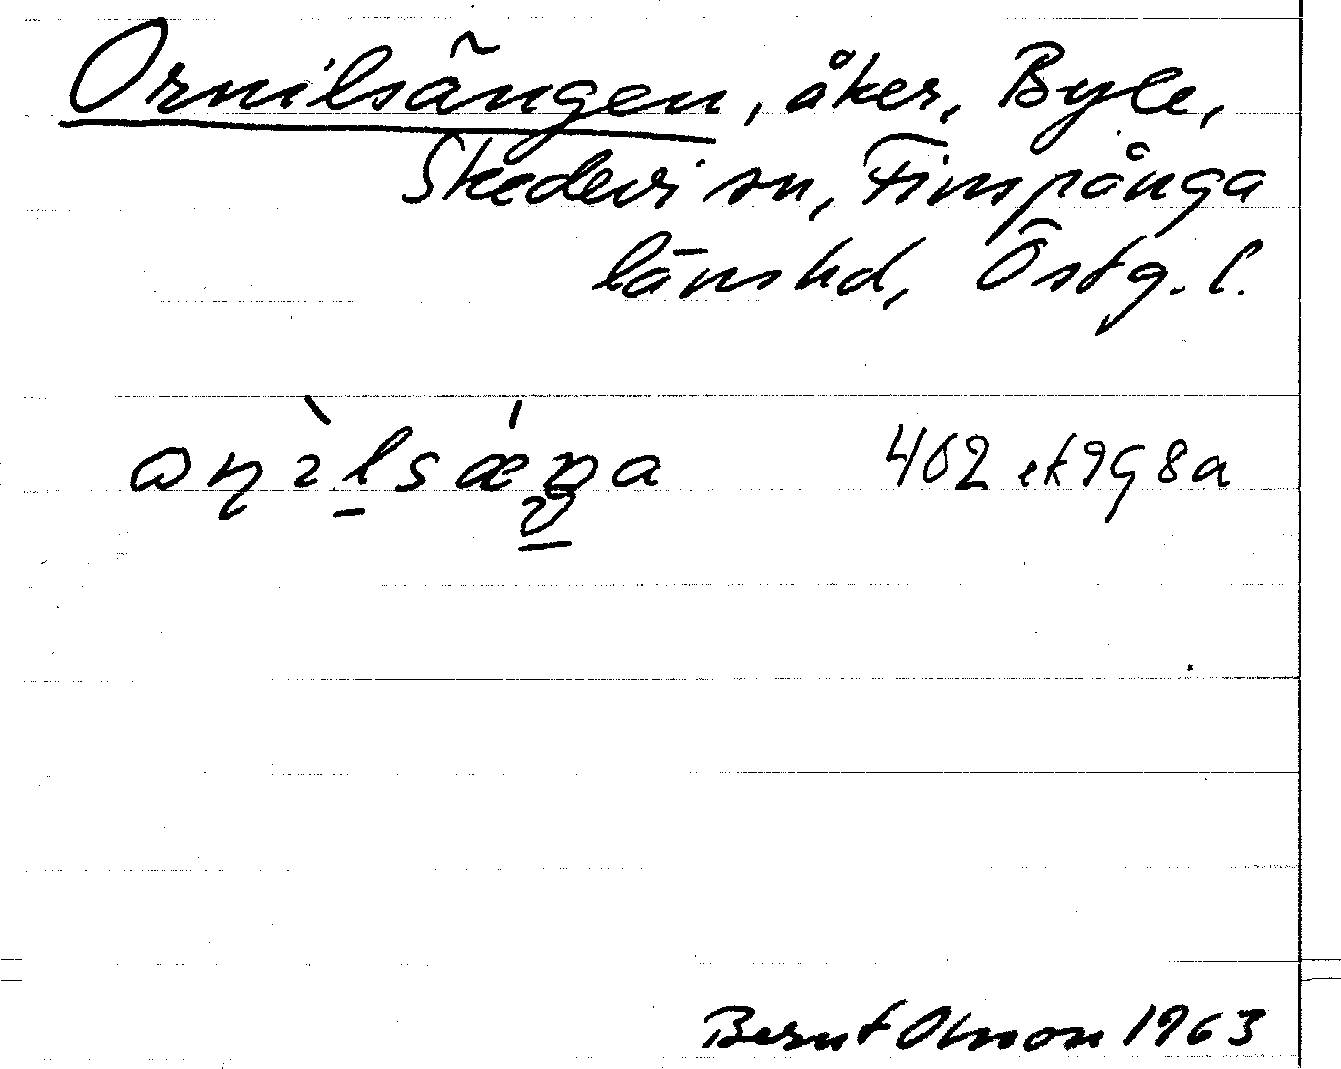 Ornilsängen, åker, Byle,
Skedevi sn, Finspånga
länshd, Östg. l.
402 ek 9G8a
Bernt Olsson 1963